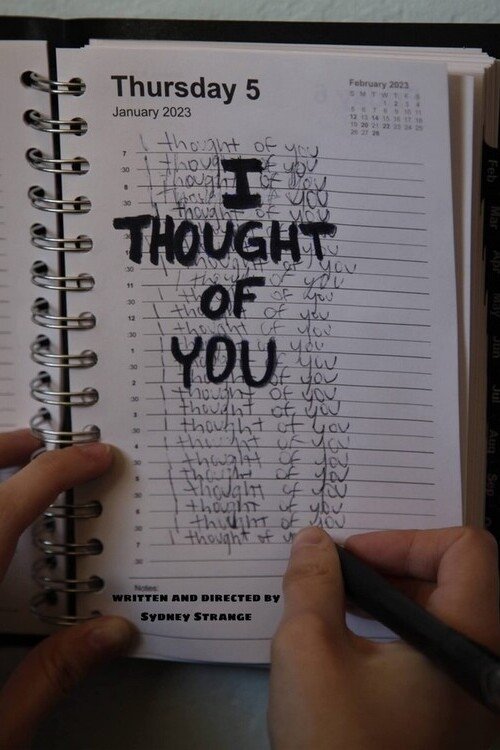 Thursday 5
January 2023
February 2023
S M T W T F S
1 2 3 4
5 6 7 8 9 10 11
12 13 14 15 16 17 18
19 20 21 22 23 24 25
26 27 28
I
THOUGHT
OF
YOU
7 I thought of you
30 I thought of you
8 I thought of you
30 I thought of you
I thought of you
30 I thought of you
11 I thought of you
30 I thought of you
12 I thought of you
30 I thought of you
1 I thought of you
30 I thought of you
2 I thought of you
30 I thought of you
3 I thought of you
30 I thought of you
4 I thought of you
30 I thought of you
5 I thought of you
30 I thought of you
6 I thought of you
30 I thought of you
7 I thought of
30
Notes:
WRITTEN AND DIRECTED BY
SYDNEY STRANGE